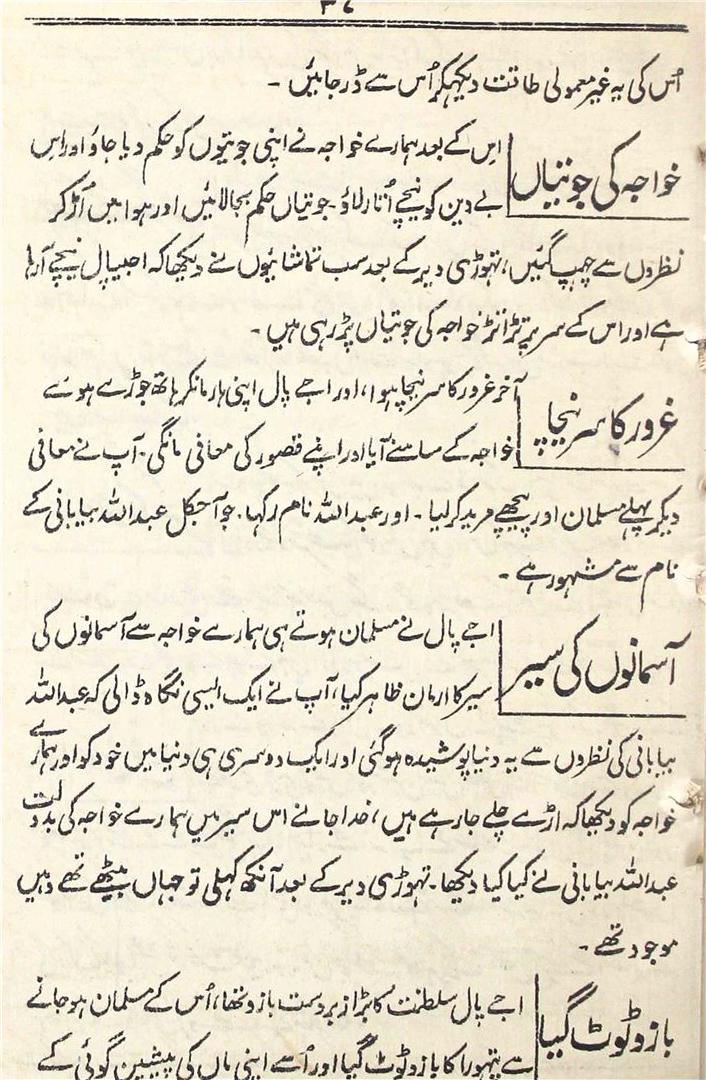 ۳۷
اُس کی یہ غیر معمولی طاقت دیکھکر اُس سے ڈر جائیں ۔
خواجہ کی جوتیاں
اِس کے بعد ہمارے خواجہ نے اپنی جوتیوں کو حکم دیا جاؤ اور اِس
بے دین کو نیچے اُتار لاؤ ۔ جوتیاں حکم بجا لائیں اور ہوا میں اُڑ کر
نظروں سے چھپ گئیں ، تہوڑی دیر کے بعد سب تماشائیوں نے دیکھا کہ اجیپال نیچے آرہا
ہے اور اس کے سر پر تڑاتڑ خواجہ کی جوتیاں پڑ رہی ہیں ۔
غرور کا سر نیچا
آخر غرور کا سر نیچا ہوا ، اور اجے پال اپنی ہار مانکر ہاتھ جوڑے ہوئے
خواجہ کے سامنے آیا اور اپنے قصور کی معافی مانگی ۔ آپ نے معافی
دیکر پہلے مسلمان اور پیچھے مرید کر لیا ۔ اور عبداللہ نام رکہا ۔ جو آجکل عبداللہ بیابانی کے
نام سے مشہور ہے ۔
آسمانوں کی سیر
اجے پال نے مسلمان ہوتے ہی ہمارے خواجہ سے آسمانوں کی
سیر کا ارمان ظاہر کیا ، آپ نے ایک ایسی نگاہ ڈالی کہ عبداللہ
بیابانی کی نظروں سے یہ دنیا پوشیدہ ہو گئی اور ایک دوسری ہی دنیا میں خود کو اور ہمارے
خواجہ کو دیکھا کہ اڑے چلے جا رہے ہیں ، خدا جانے اس سیر میں ہمارے خواجہ کی بدولت
عبداللہ بیابانی نے کیا کیا دیکھا ۔ تہوڑی دیر کے بعد آنکھ کہلی تو جہاں بیٹھے تھے وہیں
موجود تھے ۔
بازو ٹوٹ گیا
اجے پال سلطنت کا بڑا زبردست بازو تھا ، اُس کے مسلمان ہو جانے
سے پتہورا کا بازو ٹوٹ گیا اور اُسے اپنی ماں کی پیشین گوئی کے